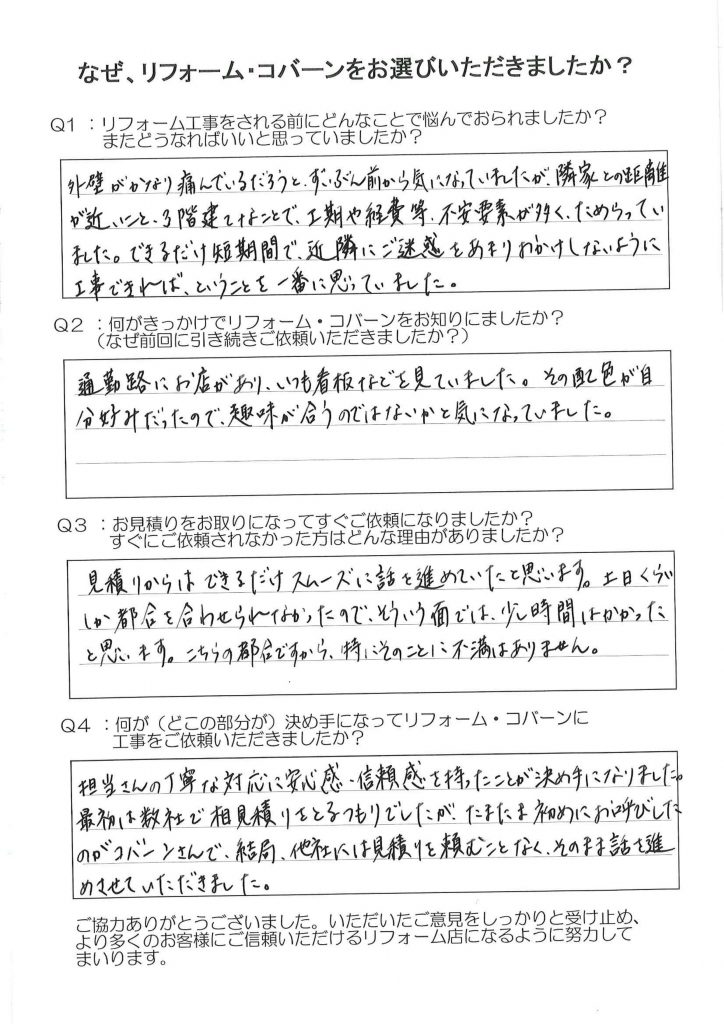 なぜ、リフォーム・コバーンをお選びいただきましたか？
Q1：リフォーム工事をされる前にどんなことで悩んでおられましたか？
またどうなればいいと思っていましたか？
外壁がかなり痛んでいるだろうと、ずいぶん前から気になっていましたが、隣家との距離
が近いこと、3階建てなことで、工期や経費等、不安要素が多く、ためらってい
ました。できるだけ短期間で、近隣にご迷惑をあまりおかけしないように
工事できれば、ということを一番に思っていました。
Q2：何がきっかけでリフォーム・コバーンをお知りにましたか？
（なぜ前回に引き続きご依頼いただきましたか？）
通勤路にお店があり、いつも看板などを見ていました。その配色が自
分好みだったので、趣味が合うのではないかと気になっていました。
Q3：お見積りをお取りになってすぐご依頼になりましたか？
すぐにご依頼されなかった方はどんな理由がありましたか？
見積りからはできるだけスムーズに話を進めていたと思います。土日くらい
しか都合を合わせられなかったので、そういう面では、少し時間はかかった
と思います。こちらの都合ですから、特にそのことに不満はありません。
Q4：何が（どこの部分が）決め手になってリフォーム・コバーンに
工事をご依頼いただきましたか？
担当さんの丁寧な対応に安心感・信頼感を持ったことが決め手になりました。
最初は数社で相見積りをとるつもりでしたが、たまたま初めにお呼びした
のがコバーンさんで、結局、他社には見積りを頼むことなく、そのまま話を進
めさせていただきました。
ご協力ありがとうございました。いただいたご意見をしっかりと受け止め、
より多くのお客様にご信頼いただけるリフォーム店になるように努力して
まいります。